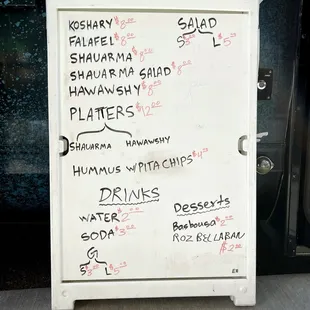 KOSHARY $8.00
FALAFEL $8.00
SHAUARMA $8.00
SHAUARMA SALAD $8.00
HAWAWSHY $8.00
PLATTERS $12.00
SHAUARMA HAWAWSHY
HUMMUS W/PITA CHIPS $4.75
SALAD
S $3.00 L $5.00
DRINKS
WATER $2.00
SODA $3.00
S $3.00 L $5.00
Desserts
Basbousa $2.00
ROZ BEL LABAN
$2.00